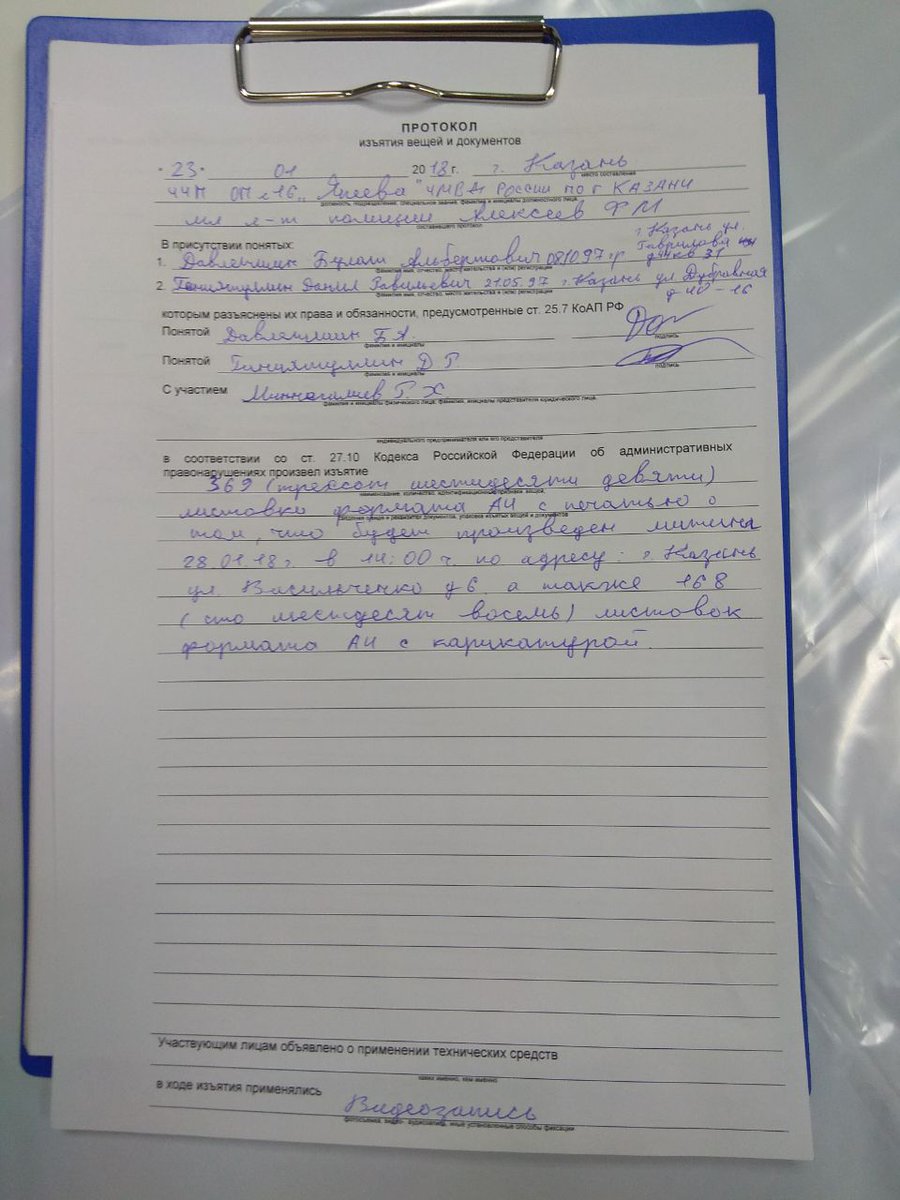 ПРОТОКОЛ
изъятия вещей и документов
"23" 01 2018 г. г. Казань
место составления
УУП ОП №16 УМВД России по г Казани
должность, подразделение, специальное звание, фамилия и инициалы должностного лица,
мл л-т полиции Алексеев Ф М
составившего протокол
В присутствии понятых:
г. Казань ул.
Гаврилова
1. Булат Альбертович 08.10.97 гр
фамилия, имя, отчество, место жительства и (или) регистрации
2. Данил 21.05.97 г. Казань ул Дубравная
фамилия, имя, отчество, место жительства и (или) регистрации
которым разъяснены их права и обязанности, предусмотренные ст. 25.7 КоАП РФ
Понятой Б А.
фамилия и инициалы
подпись
Понятой Д Г
фамилия и инициалы
подпись
С участием Г. Х
фамилия и инициалы физического лица, фамилия, инициалы представителя юридического лица,
индивидуального предпринимателя или его представителя
в соответствии со ст. 27.10 Кодекса Российской Федерации об административных
правонарушениях произвел изъятие
369 (трехсот шестидесяти девяти)
наименование, количество, идентификационные признаки вещей,
листовки формата А4 с печатью о
том, что будет произведен митинг
28.01.18 г. в 14:00 ч. по адресу: г. Казань
ул. Васильченко д 6. а также 168
(сто шестдесят восемь) листовок
формата А4 с карикатурой.
Участвующим лицам объявлено о применении технических средств
каких именно, кем именно
в ходе изъятия применялись
Видеозапись
фотосъемка, видео-, аудиозапись, иные установленные способы фиксации